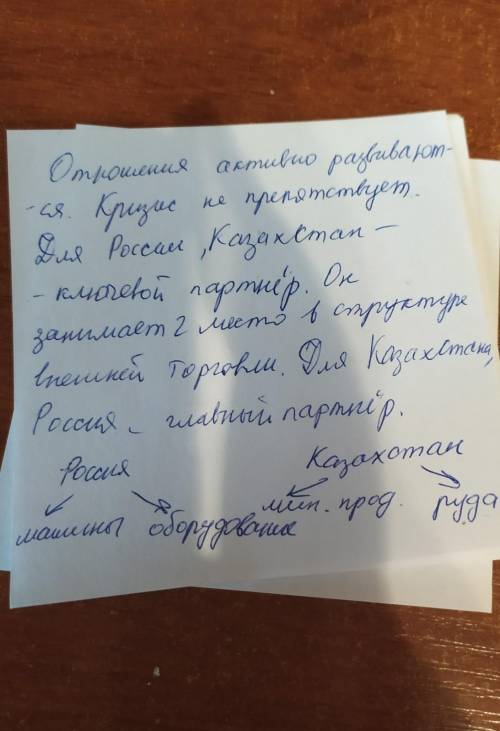 Отношения активно развивают-
-ся. Кризис не препятствует.
Для России, Казахстан –
- ключевой партнёр. Он
занимает 2 место в структуре
внешней торговли. Для Казахстана,
Россия - главный партнёр.
Россия Казахстан
машины оборудование мин. прод. руда